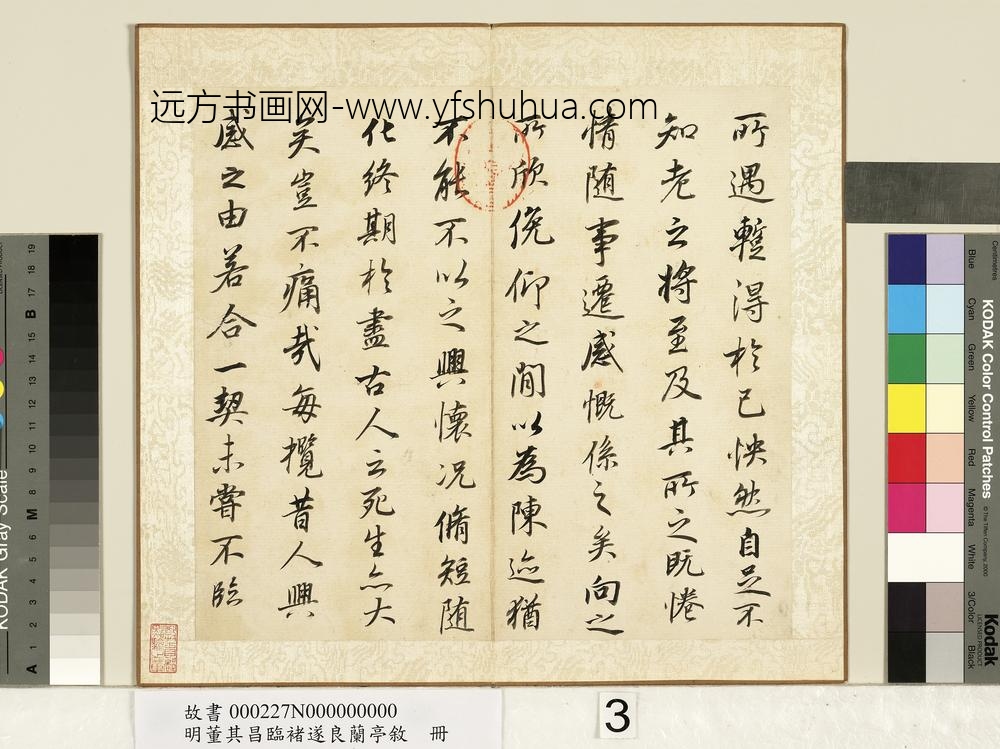 远方书画网-www.yfshuhua.com
所遇暫得於己怏然自足不
知老之將至及其所之既惓
情随事遷感慨係之矣向之
所欣俛仰之間以為陳迹猶
不能不以之興懷况脩短随
化終期於盡古人云死生亦大
矣豈不痛哉每攬昔人興
感之由若合一契未嘗不臨
故書 000227N000000000
明董其昌臨褚遂良蘭亭敘 冊
3
KODAK Color Control Patches
© The Tiffen Company, 2000
Kodak
LICENSED PRODUCT
Centimetres
Blue
Cyan
Green
Yellow
Red
Magenta
White
3/Color
Black
KODAK Gray Scale
A 1 2 3 4 5 6 M 8 9 10 11 12 13 14 15 B 17 18 19